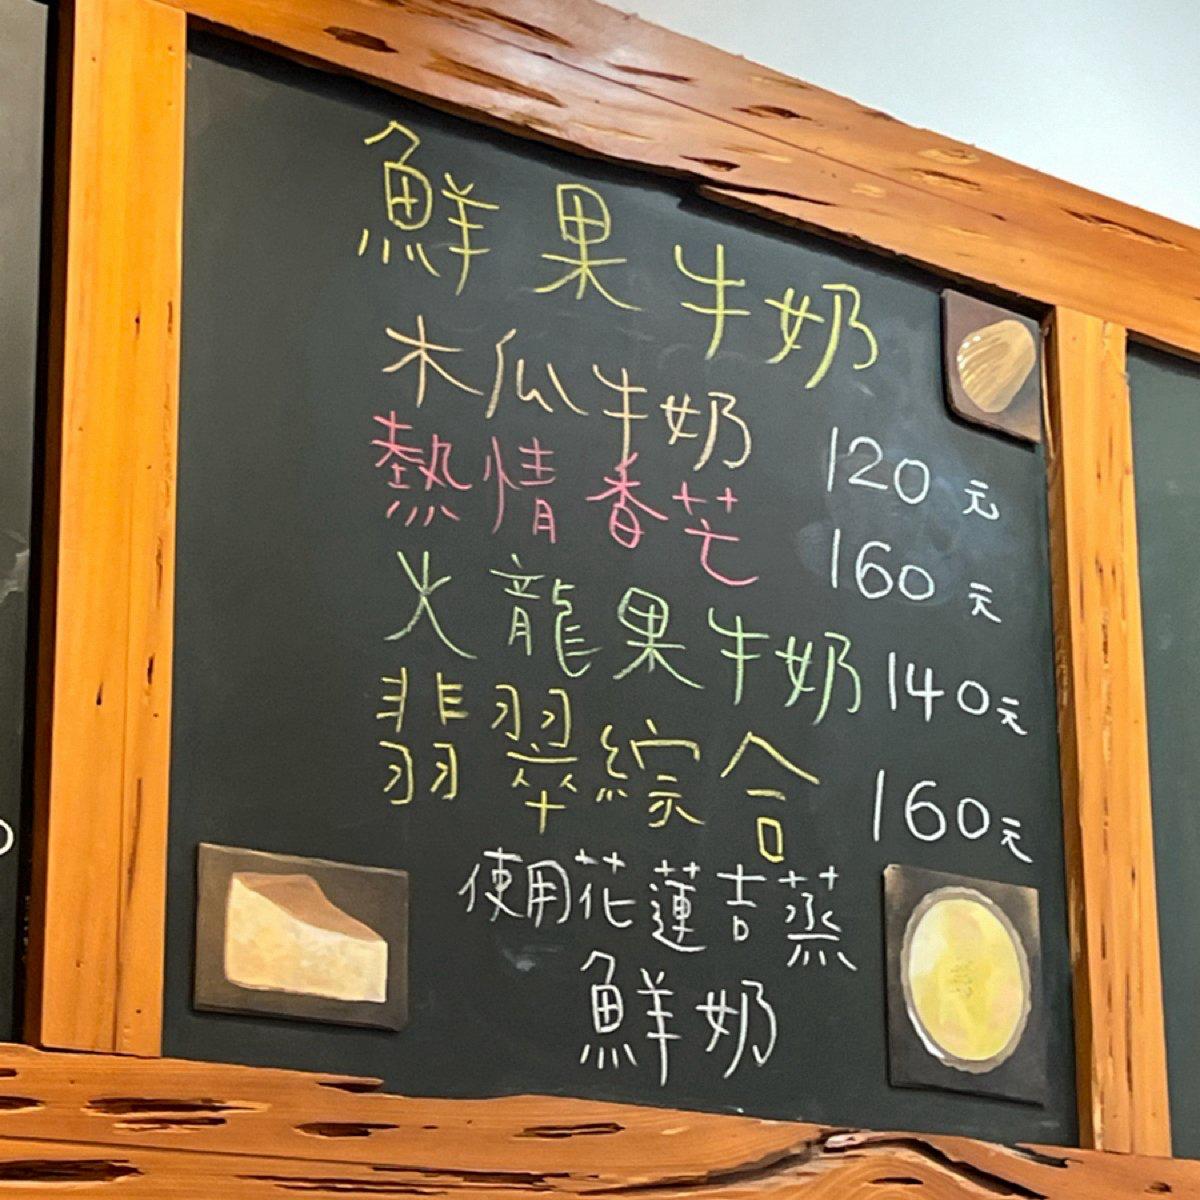 鮮果牛奶
木瓜牛奶 120元
熱情香芒 160元
火龍果牛奶 140元
翡翠綜合 160元
使用花蓮吉蒸
鮮奶